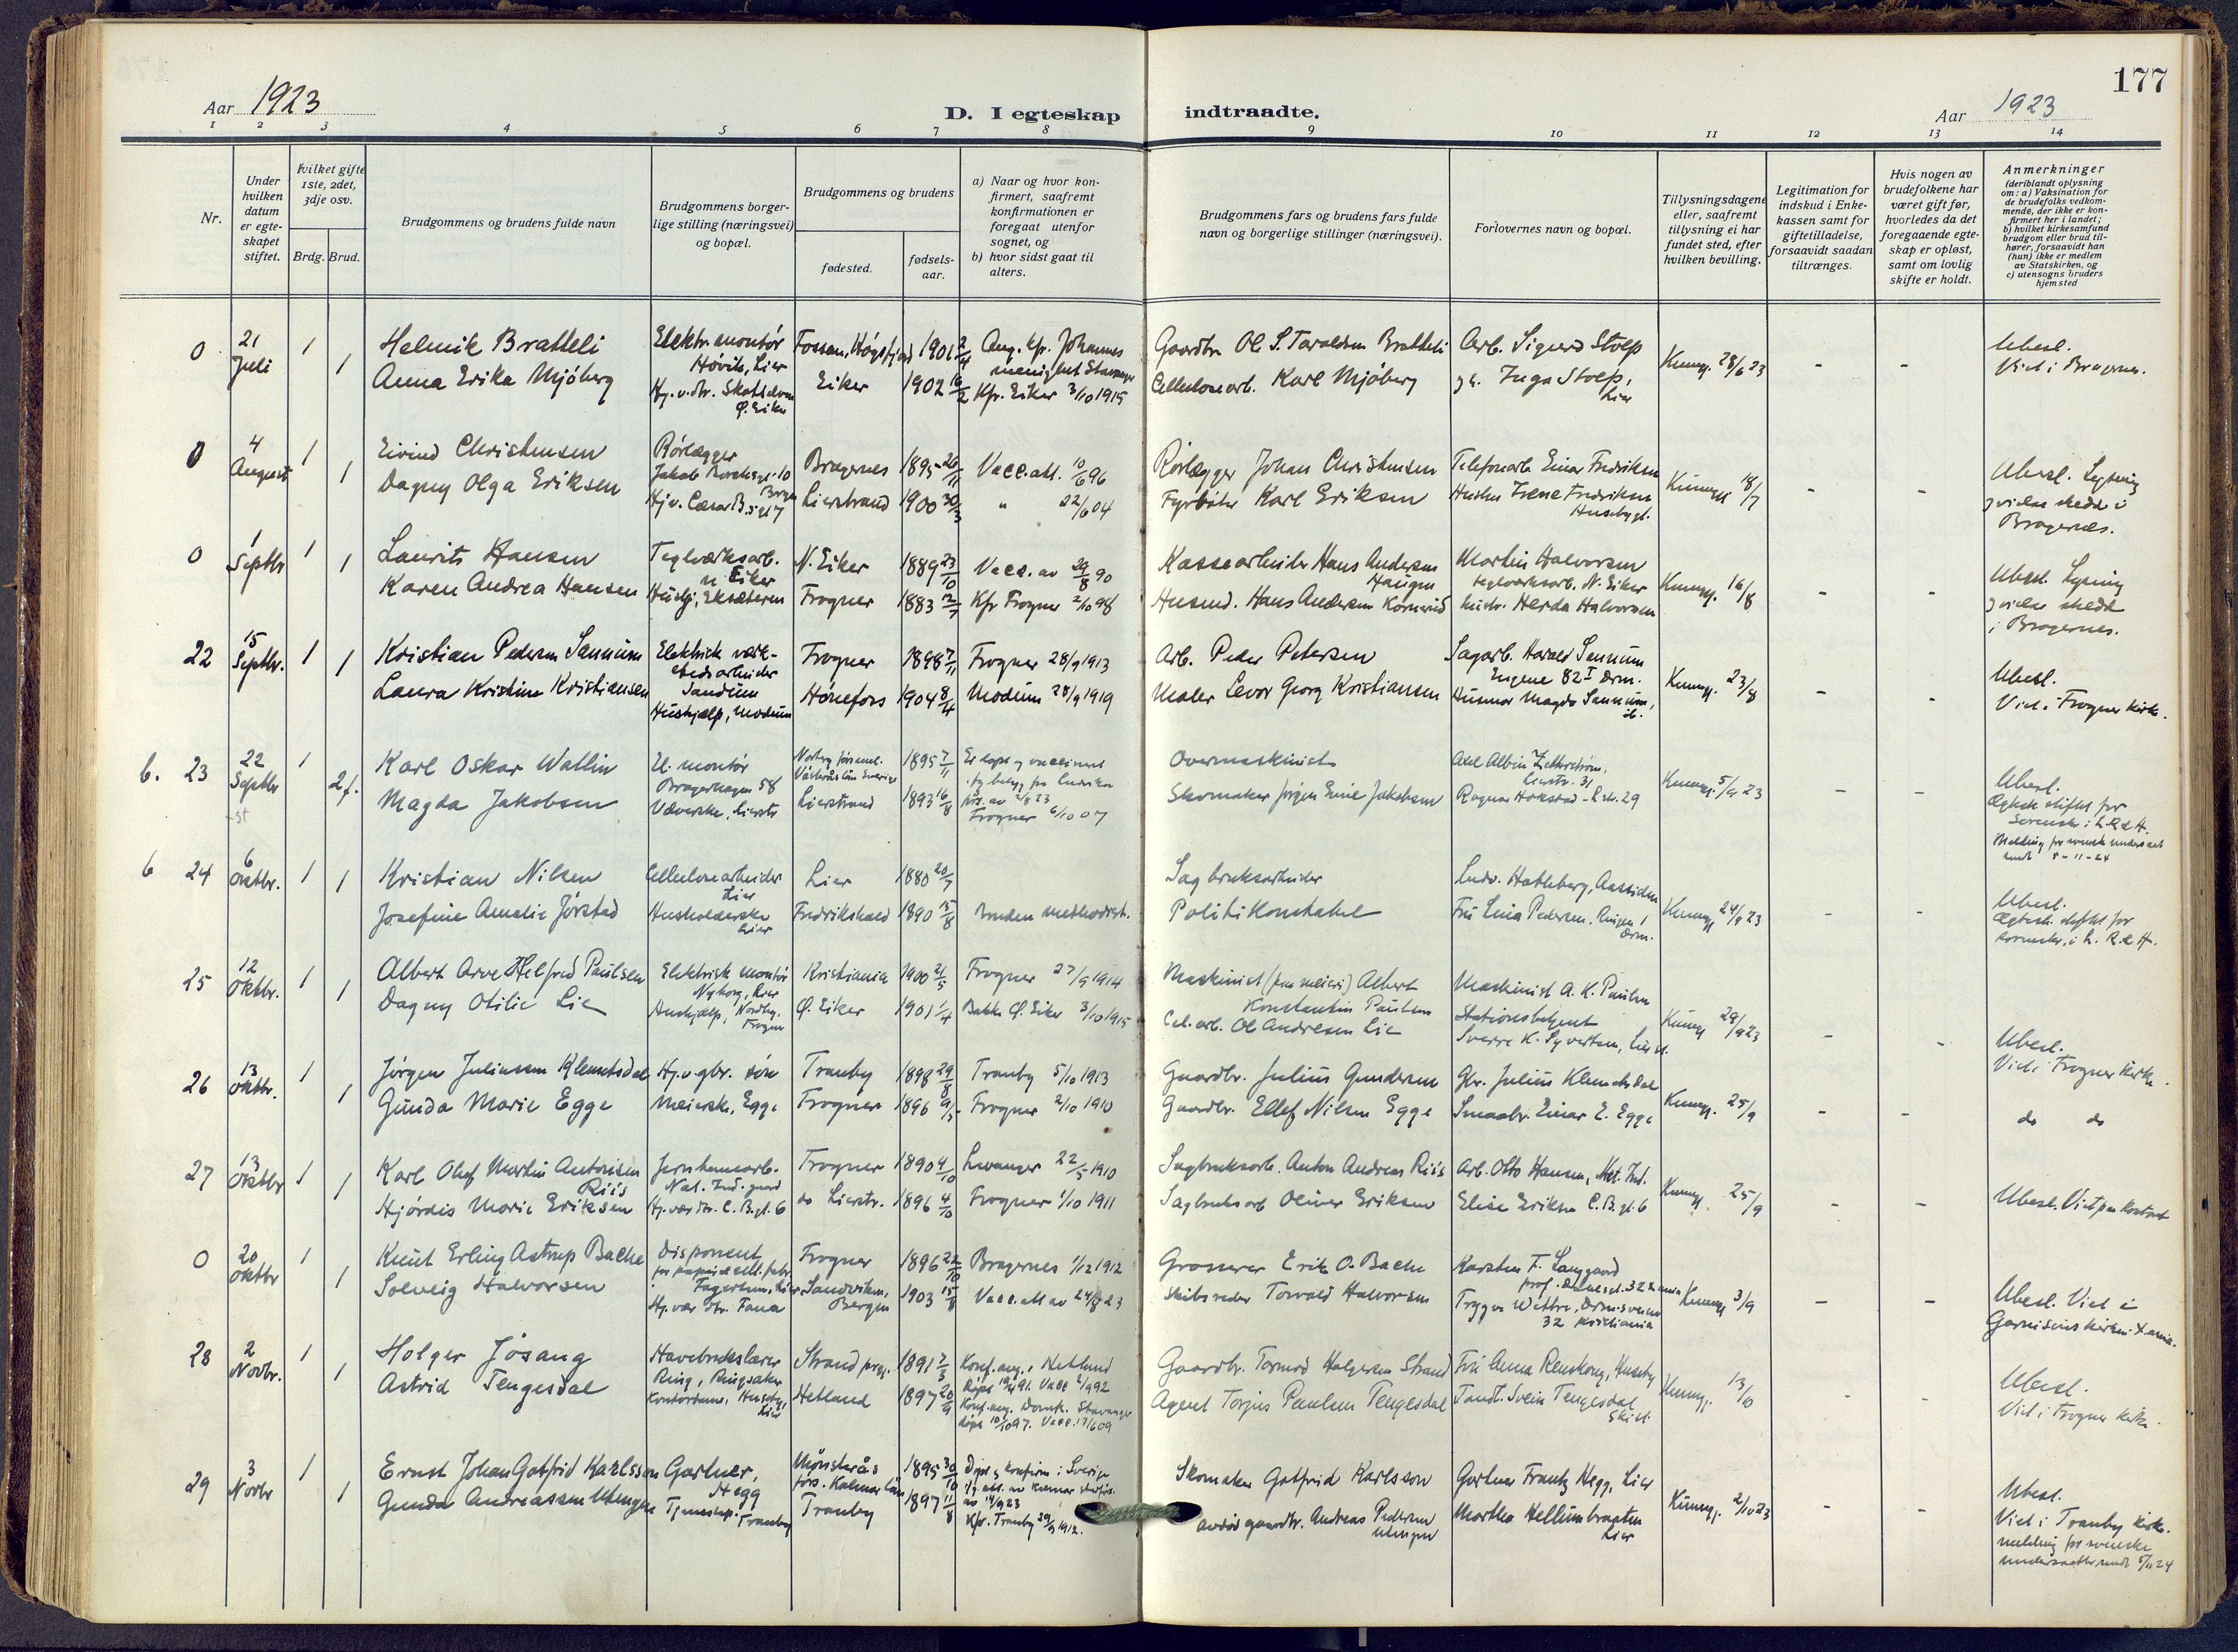 177
Aar 1923
D. I egteskap indtraadte.
Aar 1923
1 2 3 4 5 6 7 8 9 10 11 12 13 14
Nr.
Under hvilken datum er egteskapet stiftet.
Hvilket gifte 1ste, 2det, 3dje osv.
Brdg. Brud.
Brudgommens og brudens fulde navn
Brudgommens borgerlige stilling (næringsvei) og bopæl.
Brudgommens og brudens
fødested.
fødselsaar.
a) Naar og hvor konfirmert, saafremt konfirmationen er foregaat utenfor sognet, og
b) hvor sidst gaat til alters.
Brudgommens fars og brudens fars fulde navn og borgerlige stillinger (næringsvei).
Forlovernes navn og bopæl.
Tillysningsdagene eller, saafremt tillysning ei har fundet sted, efter hvilken bevilling.
Legitimation for indskud i Enkekassen samt for giftetilladelse, forsaavidt saadan tiltrænges.
Hvis nogen av brudefolkene har været gift før, hvorledes da det foregaaende egteskap er opløst, samt om lovlig skifte er holdt.
Anmerkninger
(deriblandt oplysning om: a) Vaksination for de brudefolks vedkommende, der ikke er konfirmert her i landet; b) hvilket kirkesamfund brudgom eller brud tilhører, forsaavidt han (hun) ikke er medlem av Statskirken, og c) utensogns bruders hjemsted
0 21 Juli 1 1
Helmik Bratteli
Anna Erika Mjöberg
Elektr. montør Høvik, Lier
Hj. v. dr. Skotselven Ø. Eiker
Fossan, Høgsfjord 1901 2/4
Eiker 1902 16/2
Ang. kfr. Johannes menighet Stavanger
Kfr. Eiker 3/10 1915
Gaardbr. Ole S. Taraldsen Bratteli
Cellulosearb. Karl Mjöberg
Arb. Sigurd Stolp
g. Inga Stolp, Lier
Kunng. 28/6 23
- -
Ubesl.
Viet i Bragernes.
0 4 August 1 1
Eivind Christensen
Dagny Olga Eriksen
Rørlægger
Bragernes 1895 26/11
Lierstrand 1900 30/3
Vacc. att. 10/6 96
" 22/6 04
Rørlægger Johan Christensen
Fyrbøter Karl Eriksen
Telefonarb. Einar Fredriksen
Hustru Irene Fredriksen
Husebygt.
Kunng. 18/7
- -
Ubesl. Lysning
g vielse skedd i
Bragernæs.
0 1 Septbr 1 1
Laurits Hansen
Karen Andrea Hansen
Teglverksarb.
N. Eiker
N. Eiker 1889 23/10
Frogner 1883 12/7
Vacc. av 29/8 90
Kfr Frogner 2/10 98
Kassearbeider Hans Andersen Haugen
Husmd. Hans Andersen Kornerud
Martin Halvorsen
teglverksarb. N. Eiker
hustr. Herda Halvorsen
Kunng. 16/8
- -
Ubesl. Lysning
g vielse skedd
i Bragernes.
22 15 Septbr. 1 1
Kristian Pedersen Sannum
Laura Kristine Kristiansen
Elektrisk verkstedsarbeider
Sandum
Hushjælp, Modum
Frogner 1898 7/11
Hønefoss 1904 8/4
Frogner 28/9 1913
Modum 28/9 1919
Arb. Peder Petersen
Maler Levor Georg Kristiansen
Sagarb. Harald Sannum
Engene 82 I Drm.
Husmor Magda Sannum, ib.
Kunng. 23/8
- -
Ubesl.
Viet i Frogner kirke.
b. 23 22 Septbr 1 2 f.
Karl Oskar Wallin
Magda Jakobsen
El. montør
Bragerhagen 58
Væverske, Lierstr
Norberg församl.
Västerås län Sverige 1895 7/11
Lierstrand 1893 16/8
Er døpt og vaccinert
Frogner 6/10 07
Overmaskinist
Skomaker Jørgen Emil Jakobsen
Axel Albin Zetterström,
Lierstr. 31
Ragnar Hokstad - L.str. 29
Kunng. 5/9 23
- -
Ubesl.
Ægtesk. stiftet for
Sorensk. i L. R & H.
Melding for svensk undersaat
sendt 8-11-24
b 24 6 Oktbr. 1 1
Kristian Nilsen
Josefine Amalie Jørstad
Cellulosearbeider Lier
Husholderske Lier
Lier 1880 20/7
Fredrikshald 1890 15/8
Bruden methodist.
Sagbruksarbeider
Politikonstabel
Ludv. Hatleberg, Aassiden
Fru Lina Pedersen, Ringen 1 Drm.
Kunng 24/9 23
- -
Ubesl.
Ægtesk. stiftet for
sorenskr. i L. R & H.
25 12 Oktbr. 1 1
Albert Arve Helfred Paulsen
Dagny Otilie Lie
Elektrisk montør
Nyborg, Lier
Hushjælp, Nordby, Frogner
Kristiania 1900 21/5
Ø. Eiker 1901 1/4
Frogner 27/9 1914
Bakke Ø. Eiker 3/10 1915
Maskinist (paa meieri) Albert
Konstantin Paulsen
Cel. arb. Ole Andresen Lie
Maskinist A. K. Paulsen
Stationsbetjent
Sverre K. Syvertsen, Lier st.
Kunng 29/9 23
- -
Ubesl.
Viet i Frogner kirke.
26 13 Oktbr. 1 1
Jørgen Juliussen Klemetsdal
Gunda Marie Egge
Hj. v gbr. søn
Meierske, Egge
Tranby 1898 29/8
Frogner 1896 9/5
Tranby 5/10 1913
Frogner 2/10 1910
Gaardbr. Julius Gundersen
Gaardbr. Ellef Nilsen Egge
Gbr. Julius Klemetsdal
Smaabr. Einar E. Egge
Kunng. 25/9
- -
do do
27 13 Oktbr 1 1
Karl Olaf Martin Antonsen Riis
Hjørdis Marie Eriksen
Jernbanearb.
Hj. vær. dr. C. B. gt. 6
Frogner 1890 4/10
do Lierstr. 1896 4/10
Levanger 22/5 1910
Frogner 1/10 1911
Sagbruksarb. Anton Andreas Riis
Sagbruksarb Oliver Eriksen
Arb. Otto Hansen, Nat. Ind.
Elise Eriksen C. B. gt. 6
Kunng. 25/9
- -
Ubesl. Viet paa kontoret
0 20 Oktbr 1 1
Knut Erling Astrup Bache
Solveig Halvorsen
Disponent
Fagertun, Lier
Hj. vær dr. Fana
Frogner 1896 22/10
Sandviken, Bergen 1903 15/8
Bragernes 1/12 1912
Vacc. att av 24/8 23
Grosserer Erik O. Bache
Skibsreder Torvald Halvorsen
Karsten F. Langgaard
Trygve Wettre, Drm.sveien
32 Kristiania
Kunng 3/9
- -
Ubesl. Viet i
Garnisonskirken Xania.
28 2 Novbr. 1 1
Holger Jøsang
Astrid Tengesdal
Havebrukslærer
Ring, Ringsaker
Kontordame, Husebye, Lier
Strand prgj. 1891 7/3
Hetland 1897 20/9
Konf. ang. i Hetland
Konf. ang. Domk. Stavanger
Gaardbr. Tormod Holgersen Strand
Agent Torjus Paulsen Tengesdal
Frk Anna Renskoug, Huseby
Tandl. Svein Tengesdal
Ski st.
Kunng. 13/10
- -
Ubesl.
Viet i Frogner kirke.
29 3 Novbr 1 1
Ernst Johan Gotfrid Karlsson
Gunda Andreassen Utengen
Gartner, Hegg
Tjenestep. Tranby
Mönsterås förs. Kalmar län 1895 30/10
Tranby 1897 11/8
Døpt g konfirm i Sverige
av 14/9 23
Kfr. Tranby 29/9 1912.
Skomaker Gotfrid Karlsson
avdød gaardbr. Andreas Pedersen Utengen
Gartner Frantz Hegg, Lier
Marthea Hellumbraaten Lier
Kunng. 2/10 23
- -
Ubesl.
Viet i Tranby kirke.
melding for svenske
undersaatter sendt 5/11 24